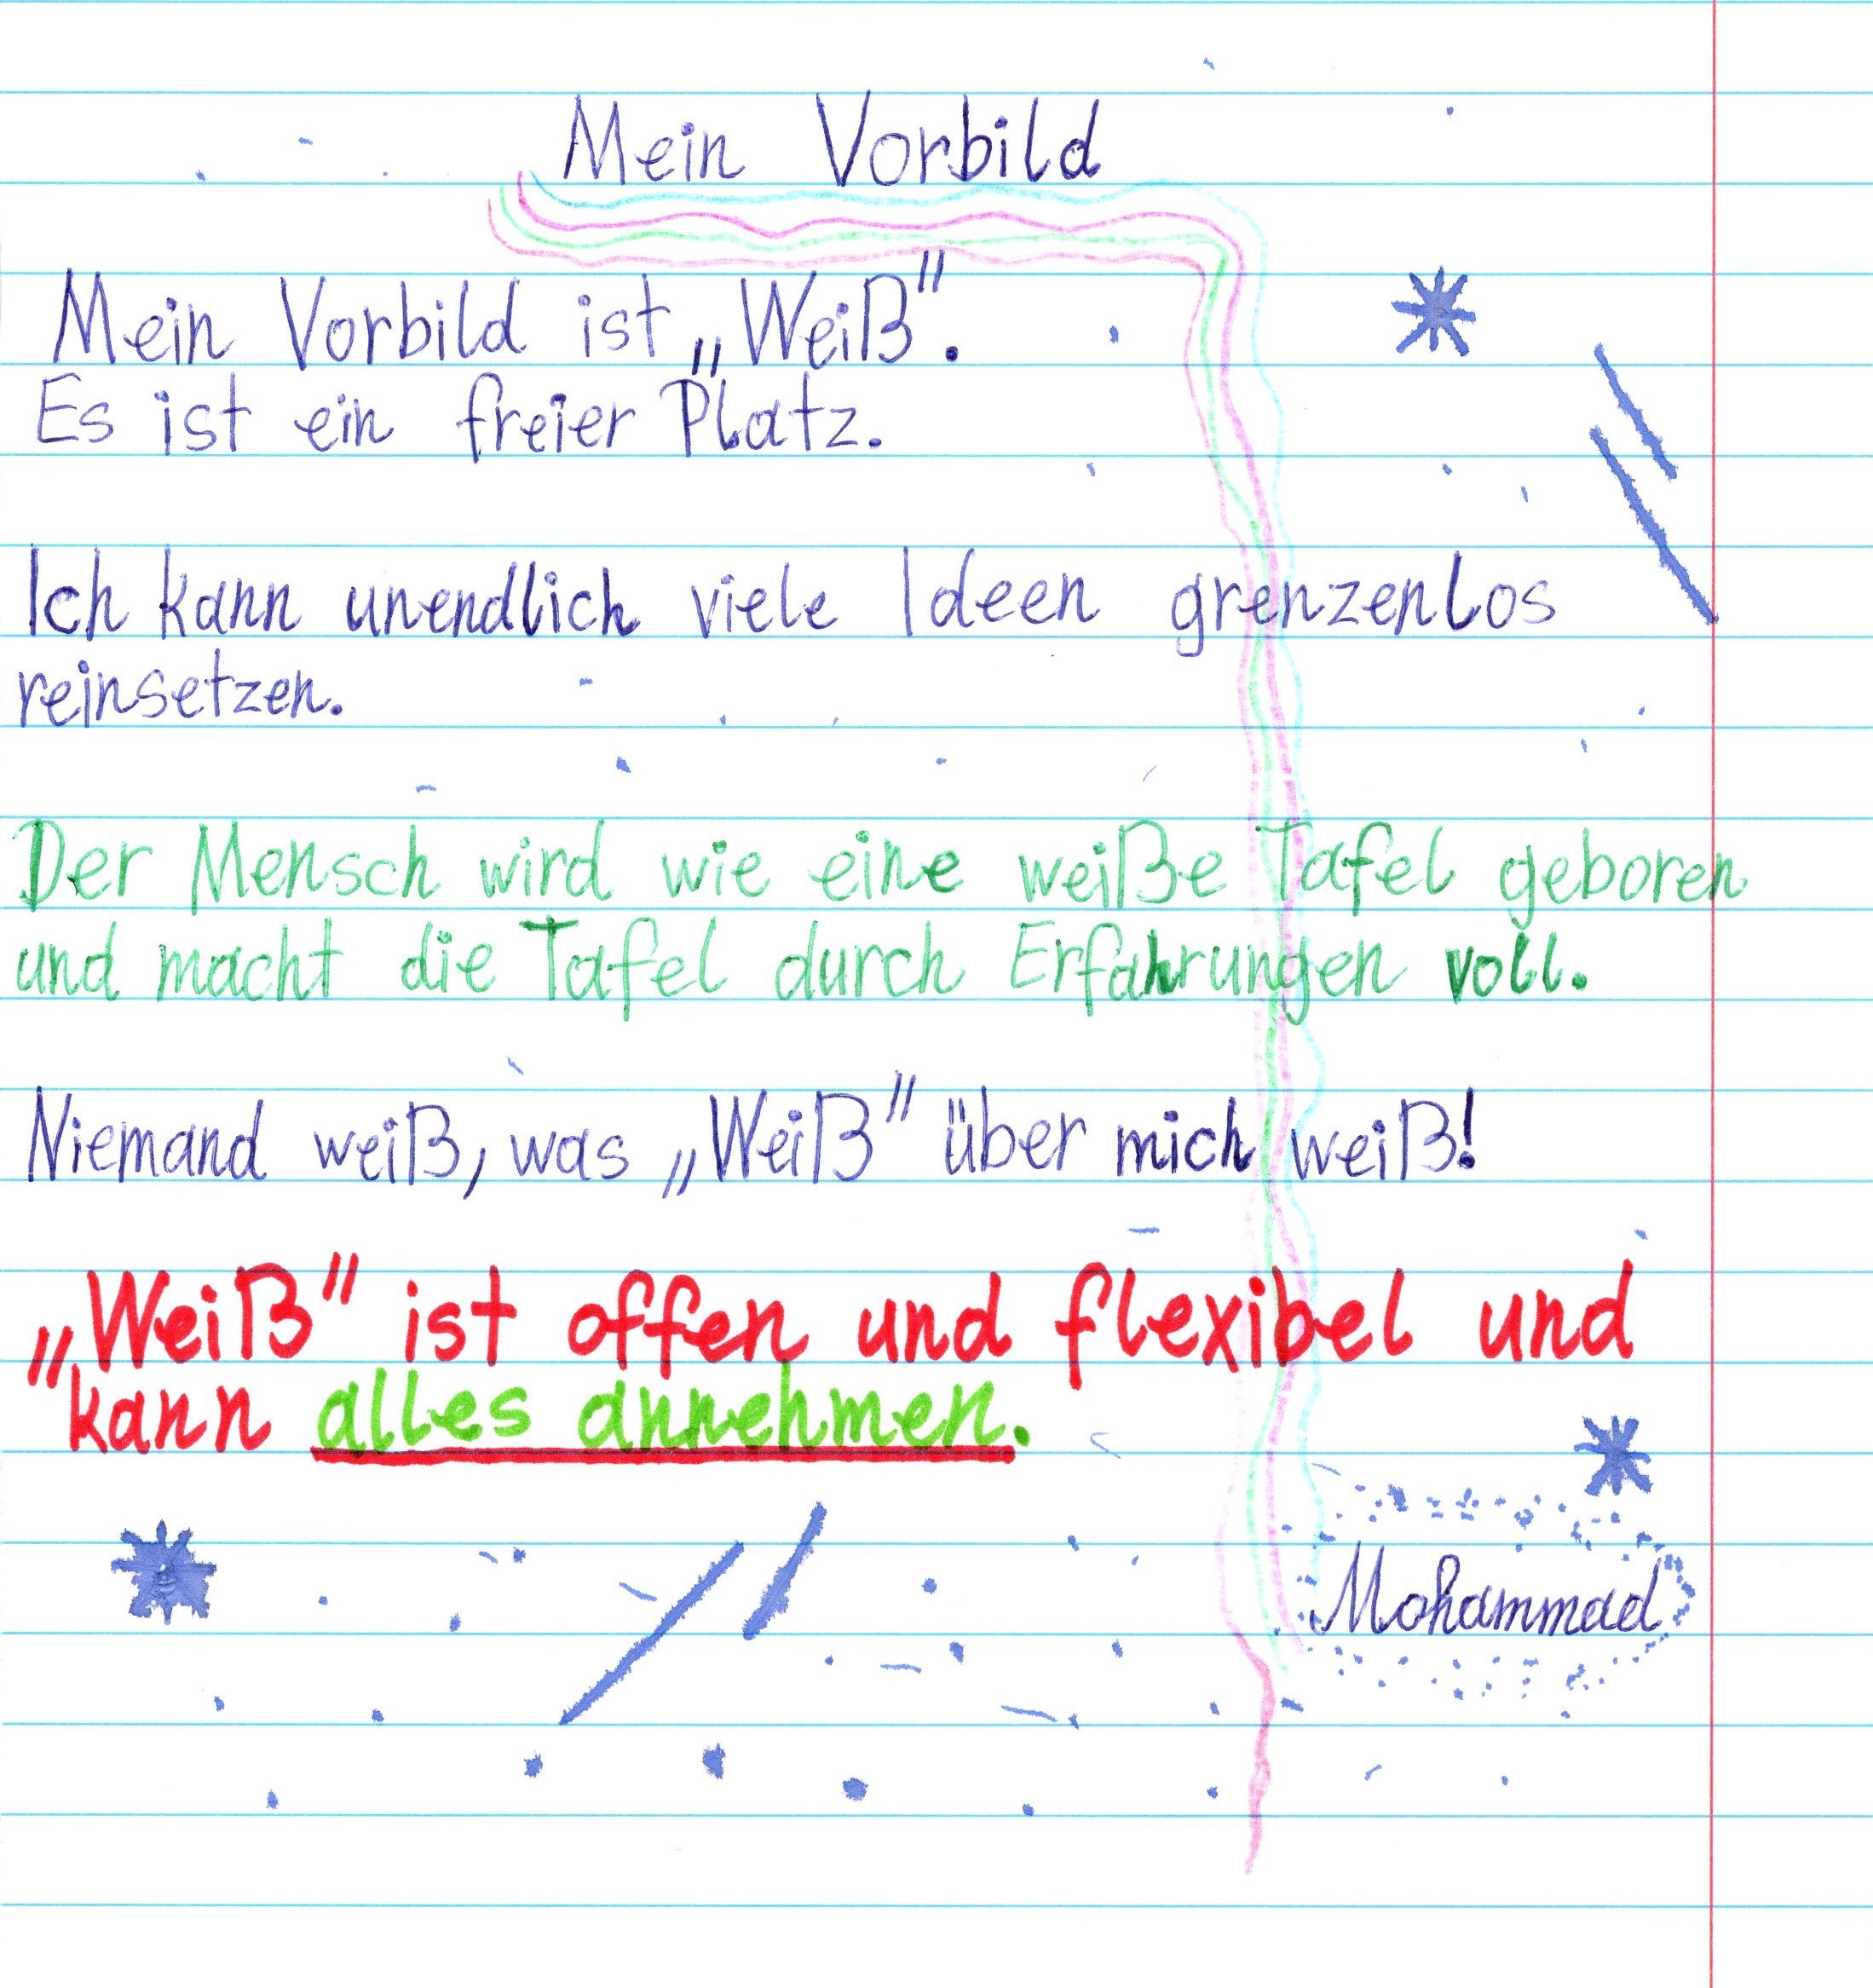 Mein Vorbild
Mein Vorbild ist „Weiß”.
Es ist ein freier Platz.
Ich kann unendlich viele Ideen grenzenlos
reinsetzen.
Der Mensch wird wie eine weiße Tafel geboren
und macht die Tafel durch Erfahrungen voll.
Niemand weiß, was „Weiß” über mich weiß!
„Weiß” ist offen und flexibel und
kann alles annehmen.
Mohammad